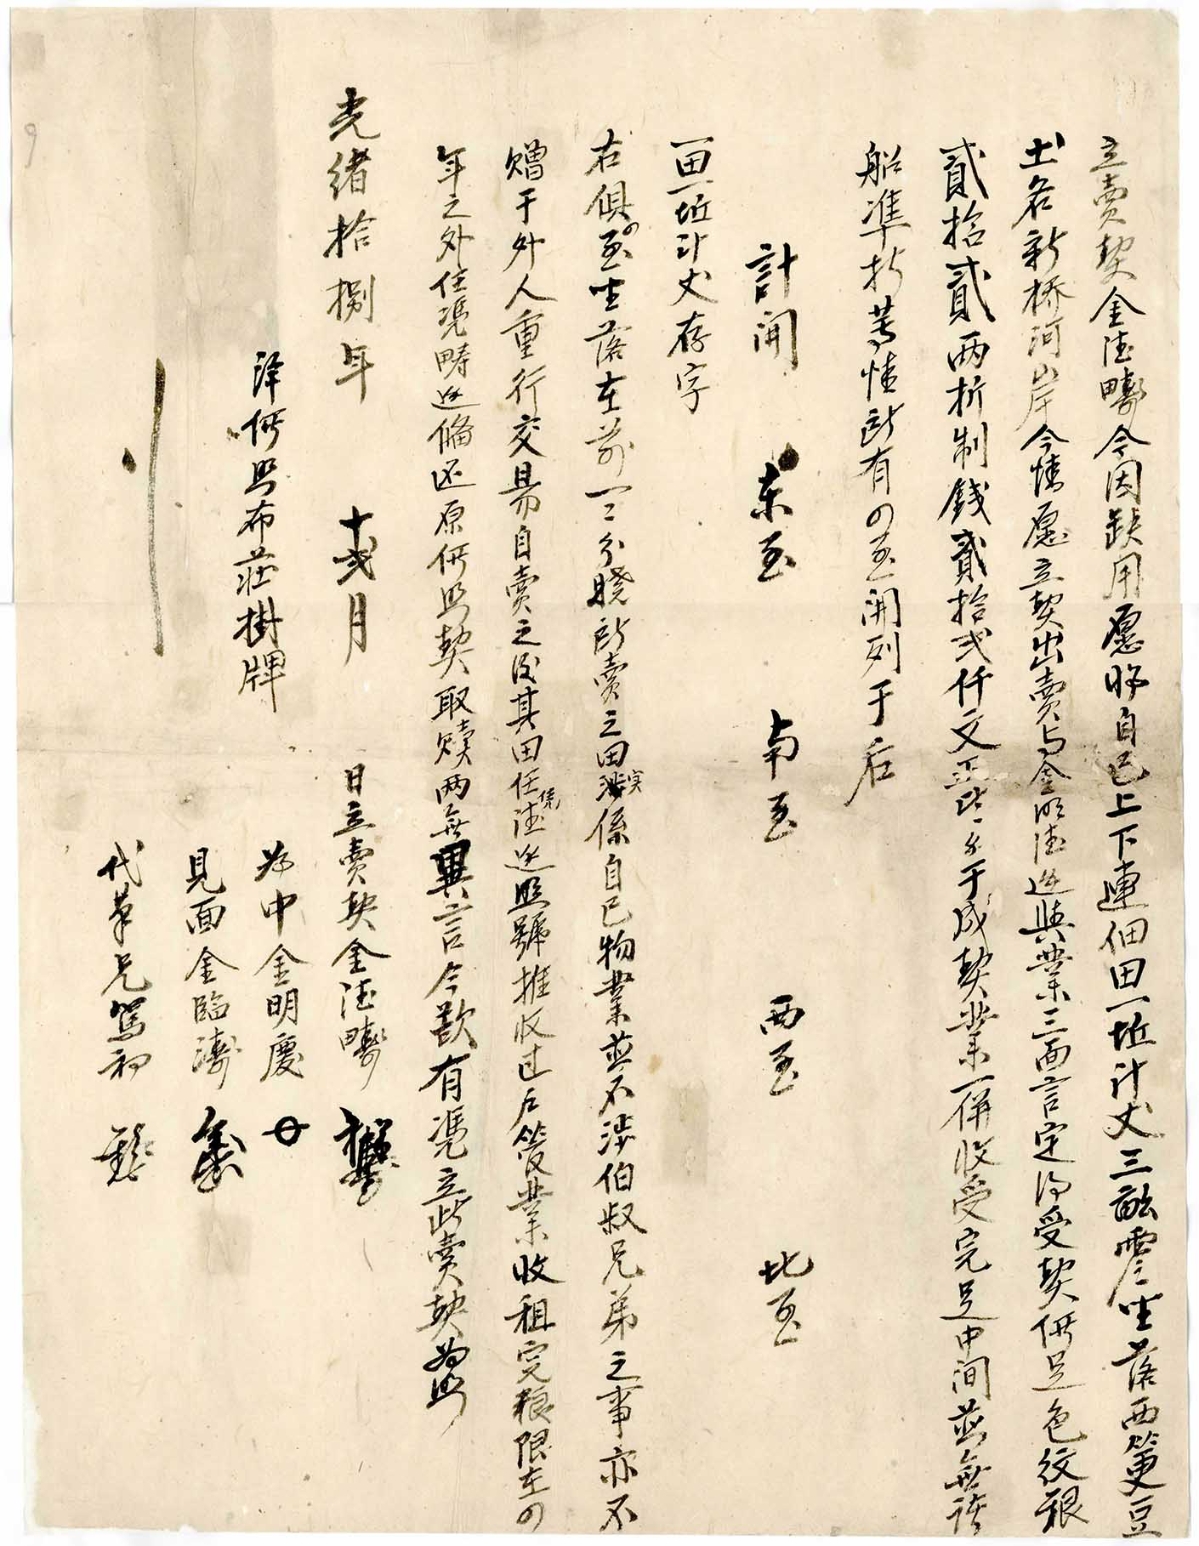 立賣契金陸疇今因缺用愿將自己上下連佃田一坵計丈三畝零坐落西
土名新桥河岸今情愿立契出賣与金明陸邊與業三面言定得受契價足色紋銀
貳拾貳两折制錢貳拾弍仟文正此系于成契業一併收受完足中间並無
船準折等情所有四至開列于后
計開 东至 南至 西至 北至
一田一坵計丈存字
右俱四至坐落在前一一分曉所賣之田实係自己物業並不涉伯叔兄弟之事亦不
贈于外人重行交易自賣之後其田任係陸邊照號推收过户管業收租完粮限在四
年之外任凭疇邊备还原價照契取赎两無異言今欲有凭立此賣契為照
光绪拾捌年 十弍月 日立賣契金陸疇
洋價照布莊掛牌
為中金明慶
見面金臨濤
代筆兄駕初